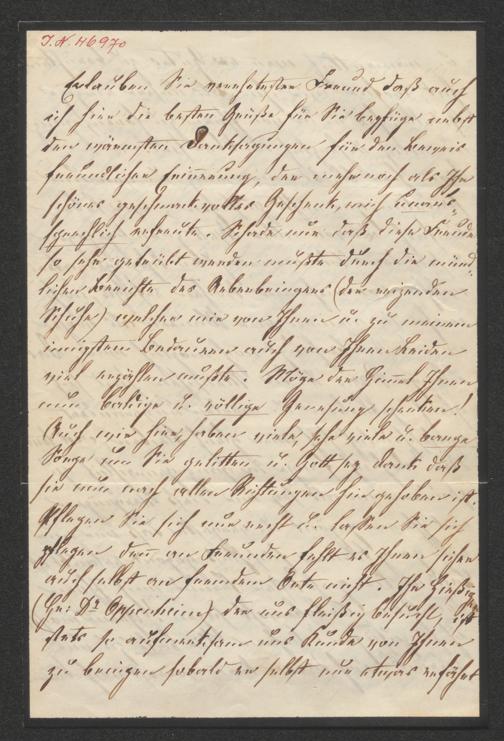 J. N. 46970
Erlauben Sie verehrtester Freund daß auch
ich hier die besten Grüße für Sie beifüge nebst
den wärmsten Danksagungen für den Beweis
freundlicher Erinnerung, der mehr noch als Ihr
schönes geschmackvolles Geschenk, mich unaus-
sprechlich erfreute. Schade nur daß diese Freude
so sehr getrübt werden mußte durch die münd-
lichen Berichte des Ueberbringers (der reizenden
Schuhe) welcher mir von Ihnen u. zu meinem
innigsten Bedauern auch von Ihren Leiden
viel erzählen mußte. Möge der Himmel Ihnen
nun baldige u. völlige Genesung schenken!
Auch wir hier, haben viele, sehr viele u. bange
Sorge um Sie gelitten u. Gott sey dank daß
sie nun nach allen Richtungen hin gehoben ist.
Pflegen Sie sich nur recht u. lassen Sie sich
pflegen den an Freunden fehlt es Ihnen sicher
auch selbst an fremdem Orte nicht. Ihr
(Hr: Dr Oppenheim) der uns fleißig besucht, ist
stets so aufmerksam uns Kunde von Ihnen
zu bringen sobald er selbst nur etwas erfährt